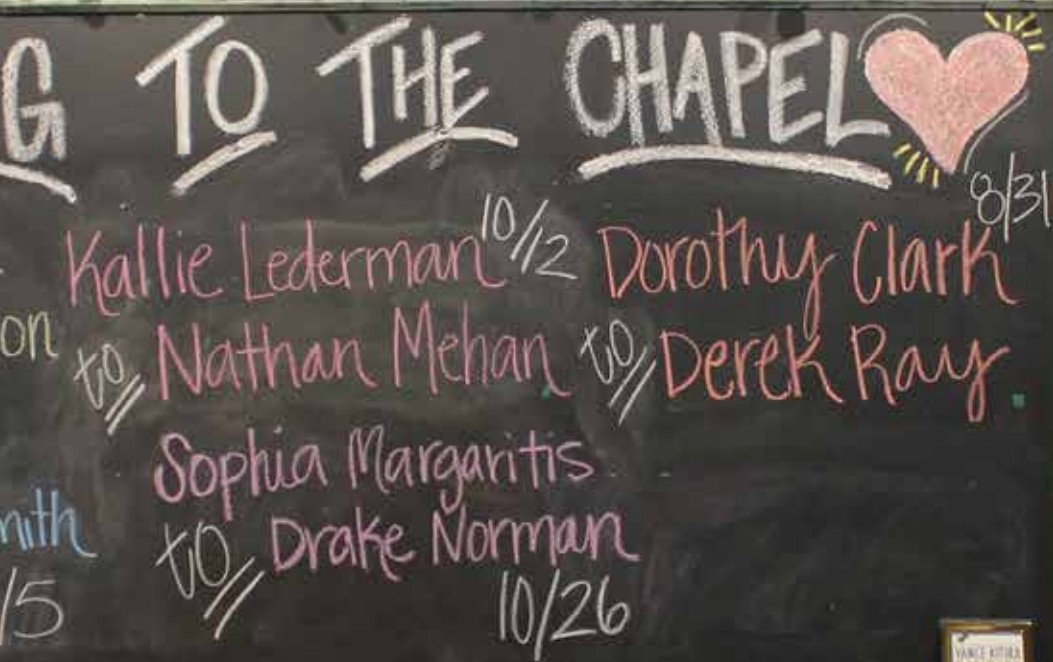 G TO THE CHAPEL
8/31
Kallie Lederman 10/12
to Nathan Mehan
Dorothy Clark
to Derek Ray
on
Sophia Margaritis
to Drake Norman
10/26
mith
/5